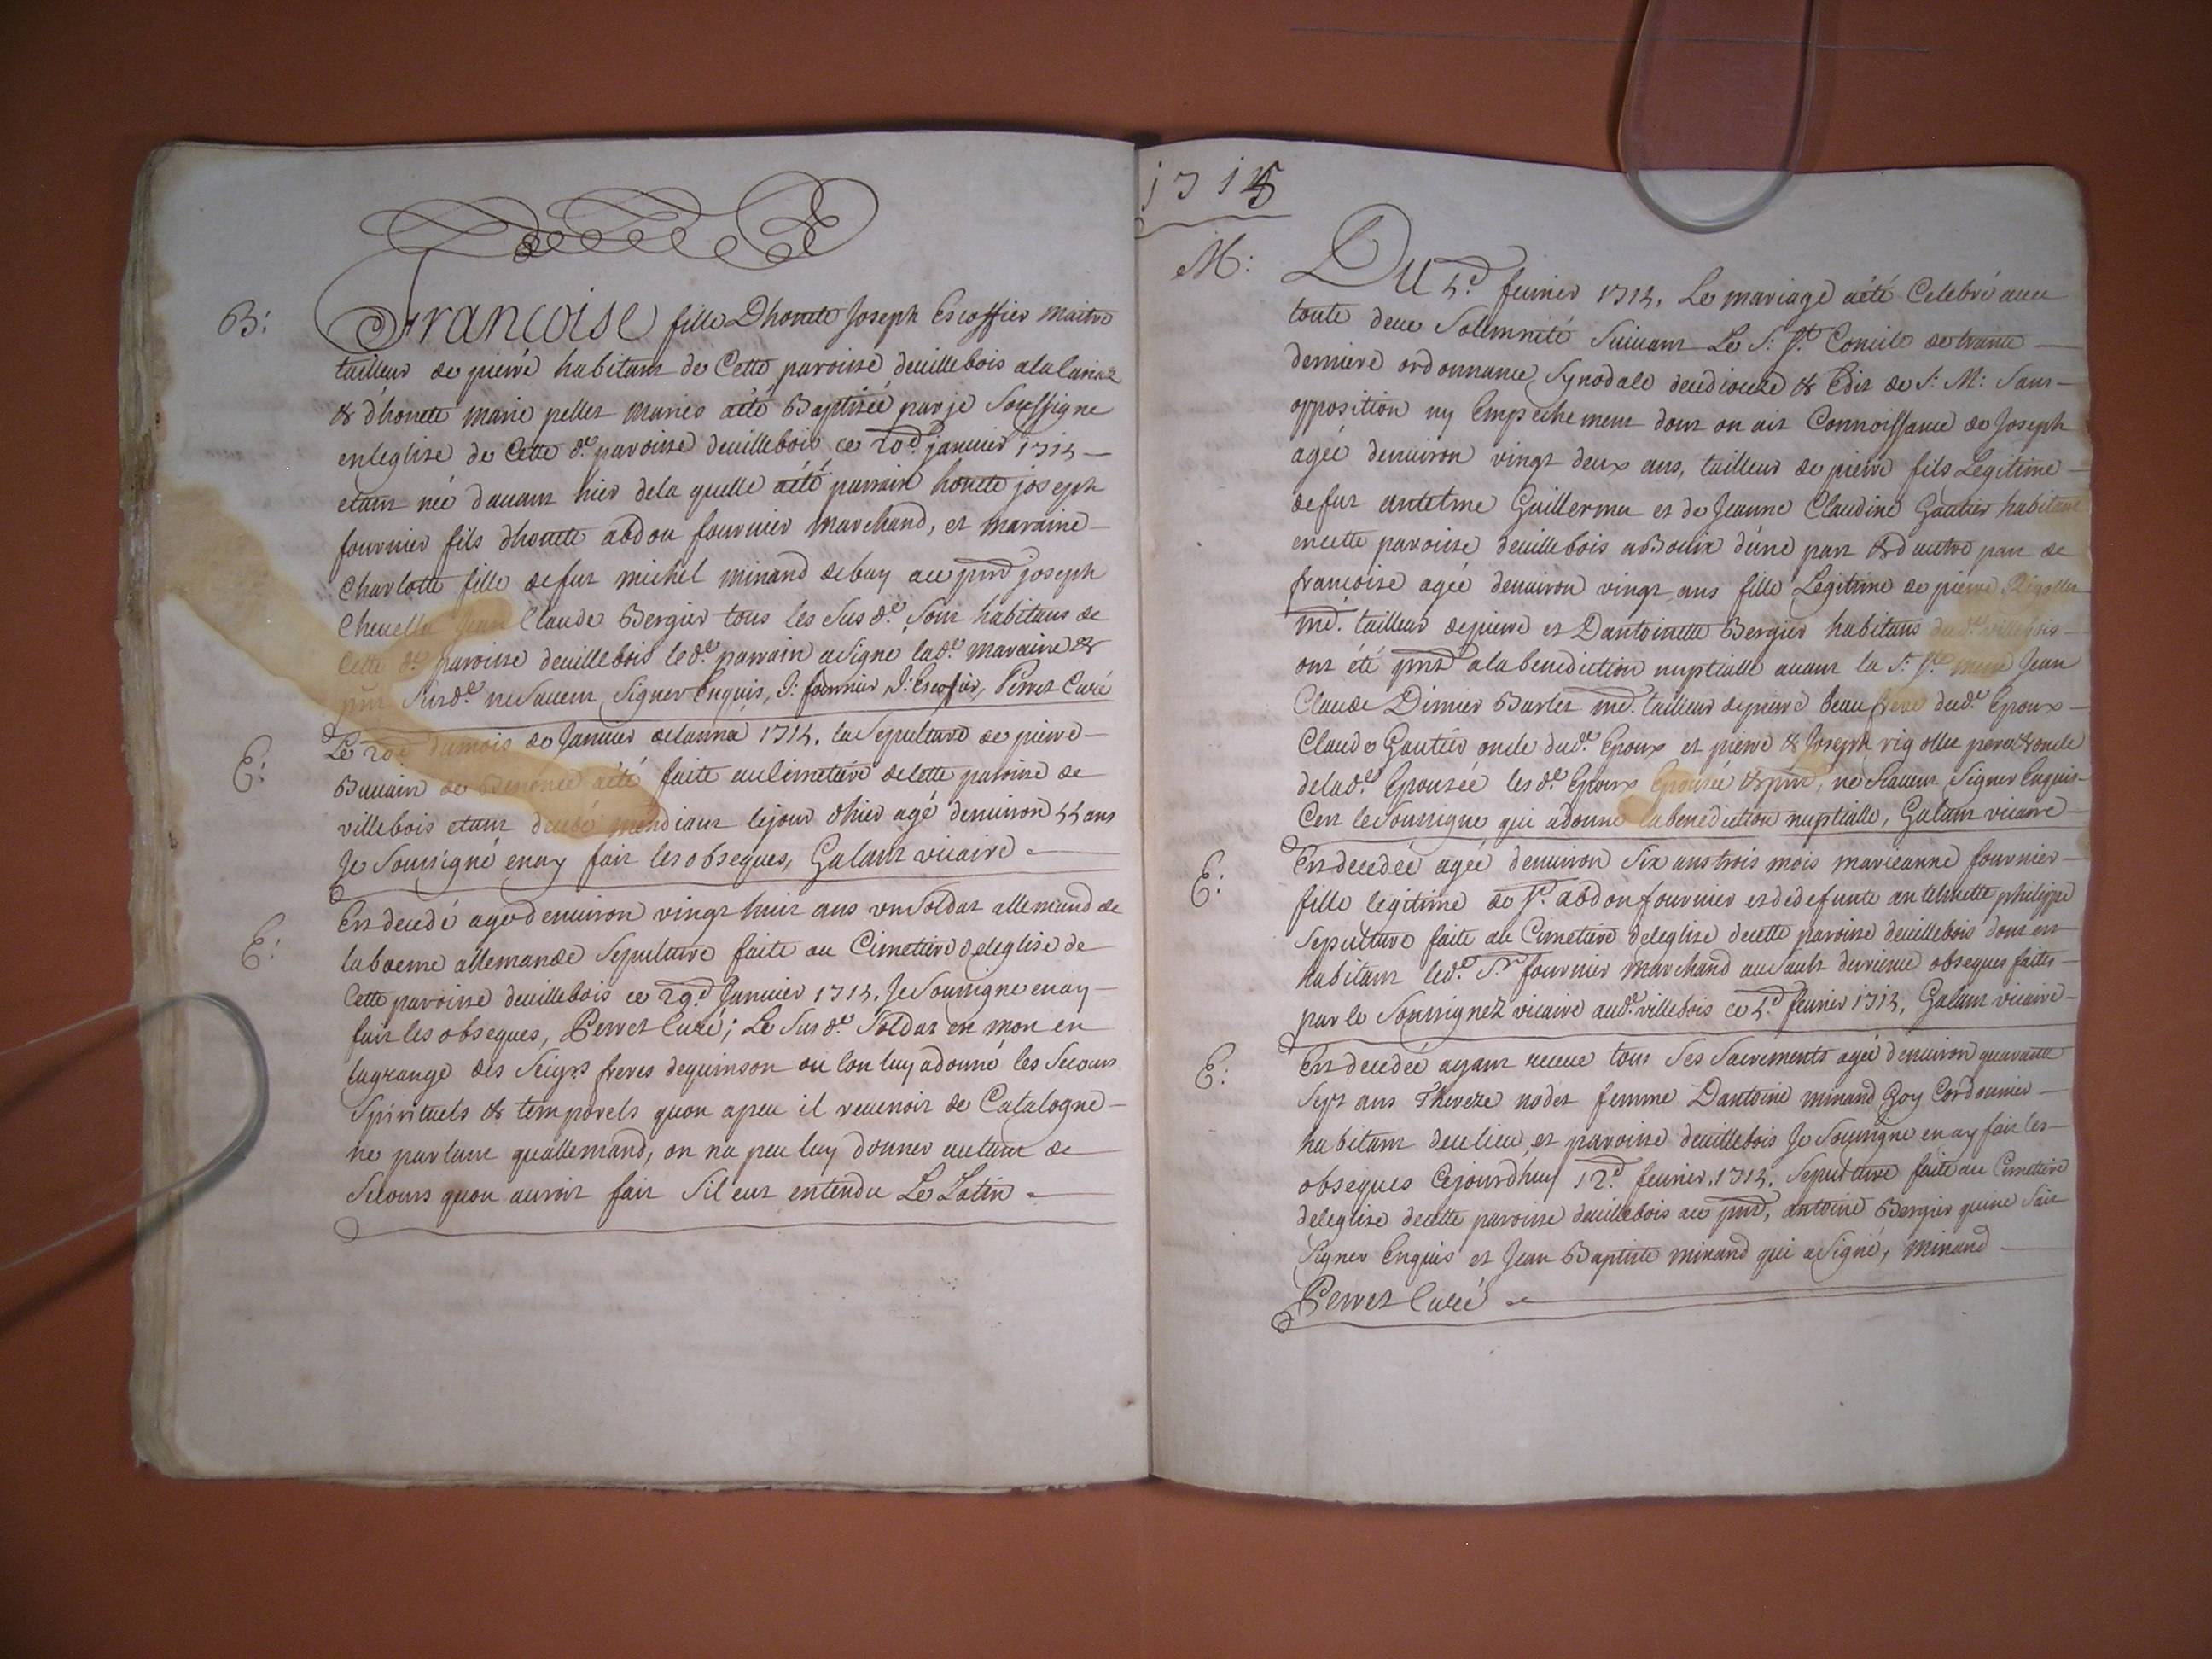 B:
Françoise fille Dhonete Joseph Escoffier maitre
tailleur de pierre habitant de Cette paroisse deuillebois
& dhonete marie pellet mariés aété Baptisée par je Soussigne
enleglise de Cette d.e paroisse deuillebois, ce 20.d januier 1714
etant née dauant hier dela quelle aété parrain honete joseph
fournier fils dhonete abdon fournier marchand, et maraine
charlotte fille defut michel minand debuy au pnd joseph
Cheuella Jean Claude Bergier tous les Susd.e Sont habitans de
Cette d.e paroisse deuillebois led.e parrain asigné lad.e maraine &
pnt Susd.e ne Sauent Signer Enquis, J: fournier, J: Escofier, Perret Curé
E:
Le dumois de Januier delanné 1714. la Sepulture de pierre
Buuain de aété faite au Cimetiere decette paroisse de
villebois etant decedé mendiant lejour dhier agé denuiron 44 ans
Je Soussigné enay fait les obseques, Galant vicaire
E:
Est decedé agé denuiron vingt huit ans vn Soldat allemand de
laboeme allemande Sepulture faite au Cimetiere deleglise de
Cette paroisse deuillebois ce 29.d Januier 1714. Je Soussigne enay
fait les obseques, Perret Curé; Le Susd.e Soldat en mort en
lagrange des Seigrs freres deguinson ou lon luy adonné les Secours
Spirituels & temporels quon apeu il reuenoit de Catalogne
ne parlant quallemand, on na peu luy donner autant de
Secours quon auroit fait Sil eut entendu Le Latin
1715
M:
Du 4.d feurier 1714. Le mariage aété Celebré auec
toute deue Solemnité Suiuant Le S: P.t Concile detrante
derniere ordonnance Synodale deudiocese & Edit de S: M: Sans
opposition ny Empechement dont on ait Connoissance de Joseph
agée denuiron vingt deux ans, tailleur de pierre fils Legitime
defut antelme Guillermet et de Jeanne Claudine Gautier habitant
encette paroisse deuillebois aBouix d'une part & dautre part de
francoise agée denuiron vingt ans fille Legitime de pierre Rigollet
md. tailleur depierre et Dantoinette Bergier habitans dud.e villebois
ont été pnts ala benediction nuptialle auant la S: P.te messe Jean
Claude Dimier Barlet md. tailleur depierre beau frere dud.e Epoux
Claude Gautier oncle dud.e Epoux et pierre & Joseph rigollet pere & oncle
delad.e Epousée les d.e Epoux Epousée & pnt, ne Sauent Signer Enquis
Cest le Soussigne qui adonné la benediction nuptialle, Galant vicaire
E:
Est decedeé ageé denuiron Six ans trois mois marieanne fournier
fille legitime de Sr. abdon fournier et dedefunte antelmette philippe
Sepulture faite au Cimetiere deleglise decette paroisse deuillebois dont est
habitant led.e Sr fournier Marchand au Sault derniere obseques faites
par le Soussignez vicaire aud.e villebois ce 4.d feurier 1714, Galant vicaire
E:
Est decedée ayant receue tous Ses Sacrements agée denuiron quarante
Sept ans Thereze nodet femme Dantoine minand Goy Cordonnier
habitant deulieu et paroisse deuillebois Je Soussigne enay fait les
obseques Cejourdhuy 12.d feurier, 1714. Sepulture faite au Cimetiere
deleglise decette paroisse deuillebois au pnd, antoine Bergier quine Sait
Signer Enquis et Jean Baptiste minand qui asigné, minand
Perret Curé